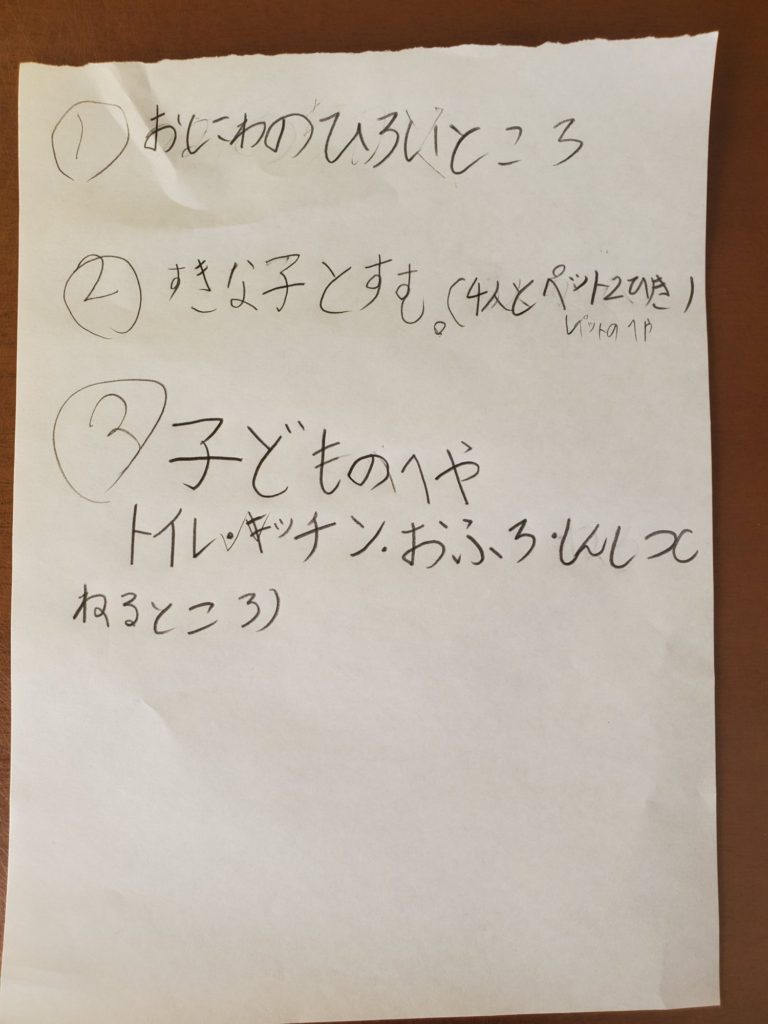 ① おにわのひろいところ
② すきな子とすむ。(4人とペット2ひき)
ペットのへや
③ 子どものへや
トイレ・キッチン・おふろ・しんしつ(
ねるところ)